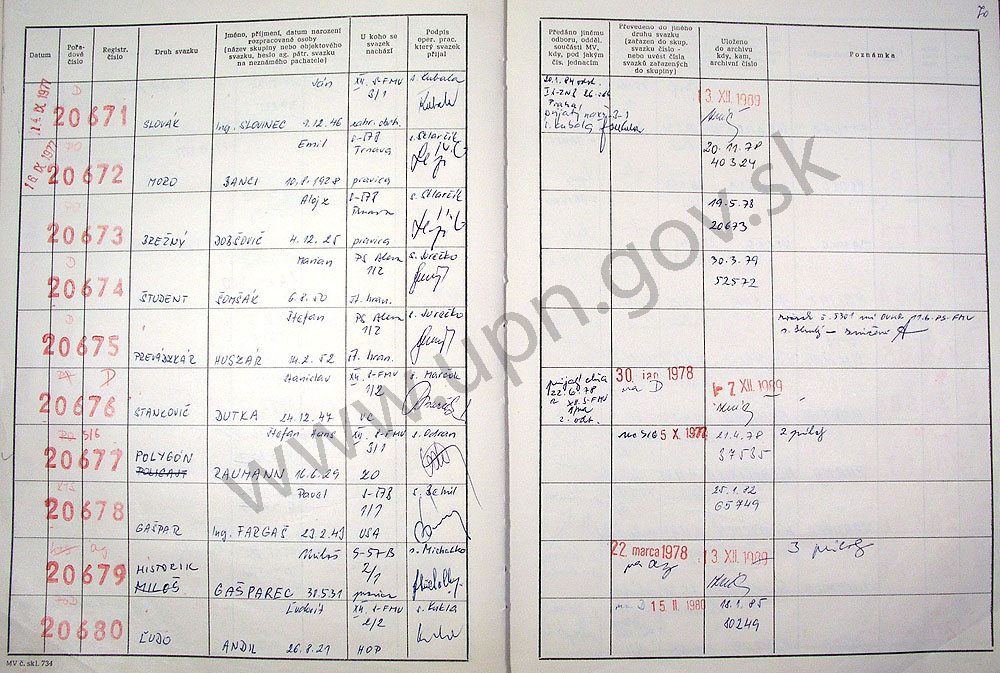 70
Datum
Pořadové číslo
Registr. číslo
Druh svazku
Jméno, příjmení, datum narození rozpracované osoby (název skupiny nebo objektového svazku, heslo ag. pátr. svazku na neznámého pachatele)
U koho se svazek nachází
Podpis oper. prac. který svazek přijal
Předáno jinému odboru, odděl. součásti MV, kdy, pod jakým čís. jednacím
Převedeno do jiného druhu svazku (zařazen do skup. svazku číslo - nebo uvést čísla svazků zařazených do skupiny)
Uloženo do archivu kdy, kam, archivní číslo
Poznámka
14 IX. 1977
D
20671
SLOVÁK
Ján
Ing. SLOVINEC 9.12.46
XII. S-FMV
3/1
s. Kubala
Praha
s. Kubala
13 XII. 1989
16 IX. 1977
20672
MORO
Emil
BANCI 10.8.1928
S-ŠTB
Trnava
pravica
s. Sklarčik
20.11.78
40324
20673
BREŽNÝ
Alojz
DOBŠOVIČ 4.12.25
Trnava
pravica
s. Sklarčik
19.5.78
20673
D
20674
ŠTUDENT
Marian
ŠOMŠÁK 6.8.50
PS Alem
1/2
št. hran.
s. Jurečko
30.3.79
52572
D
20675
PREVÁDZKÁR
Štefan
HUSZÁR 14.2.52
PS Alem
1/2
št. hran.
s. Jurečko
D
20676
STANKOVIČ
Stanislav
DUTKA 24.12.47
XII. S-FMV
1/2
VC
s. Marčok
22.6.78
XII. S-FMV
2. odd.
30 jan 1978
na D
7 XII. 1989
S16
20677
POLYGÓN
POLICAJT
Štefan Hans
RAUMANN 16.6.29
XII. S-FMV
3/1
ZO
s. Odran
na S16
5 X. 1977
21.4.78
37535
2 prílohy
20678
GAŠPAR
Pavol
Ing. FARGAŠ 23.2.43
S-ŠTB
1/1
USA
25.1.82
65749
ag
20679
HISTORIK
MILOŠ
Miloš
GAŠPAREC 30.5.31
S-ŠTB
2/1
pravica
s. Michalko
22 marca 1978
13 XII. 1989
3 prílohy
20680
ĽUDO
Ľudovít
ANDIL 26.8.21
XII. S-FMV
2/2
HOP
s. Kukla
na D 15 II. 1980
18.1.85
80249
MV č. skl. 734
www.upn.gov.sk